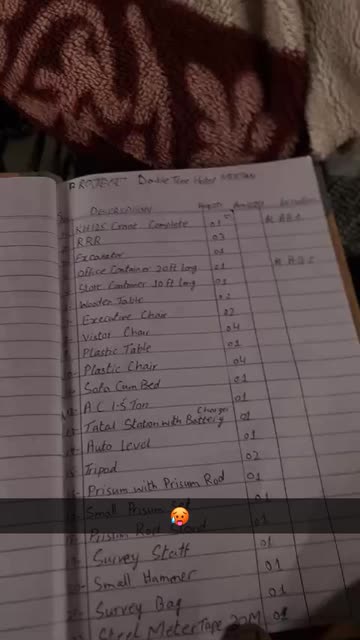 PROJECT Double Tree Hotel MULTAN
Description
KH125 Crane Complete 01
RRR 03
Excavator 01
Office Container 20ft Long 01
Store Container 10ft Long 01
Wooden Table 02
Executive Chair 02
Vistor Chair 04
Plastic Table 01
Plastic Chair 04
Sofa Cum Bed 01
A C 1.5 Ton 01
Total Station with Battery Charger 01
Auto Level 01
Tripod 02
Prisum with Prisum Rod 01
Small Prisum 01
Prisum Rod 01
Survey Staff 01
Small Hammer 01
Survey Bag 01
Steel Meter Tape 20M 01